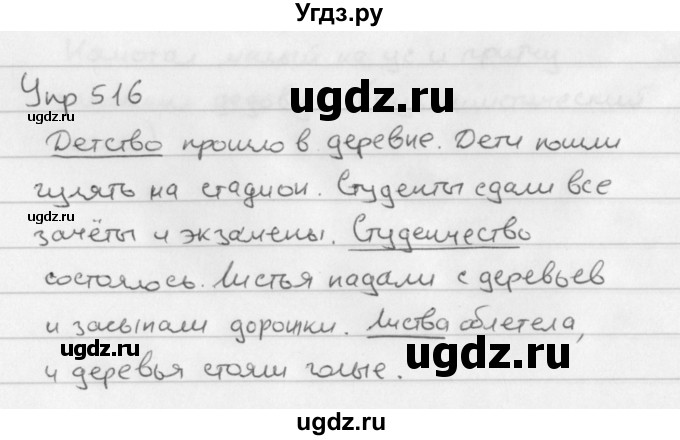 Угдз.ру
Упр 516
ugdz.ru
ugdz.ru
Детство прошло в деревне. Дети пошли
гулять на стадион. Студенты сдали все
ugdz.ru
зачёты и экзамены. Студенчество
состоялось. Листья падали с деревьев
и засыпали дорожки. Листва облетела,
ugdz.ru
ugdz.ru
и деревья стояли голые.
ugdz.ru